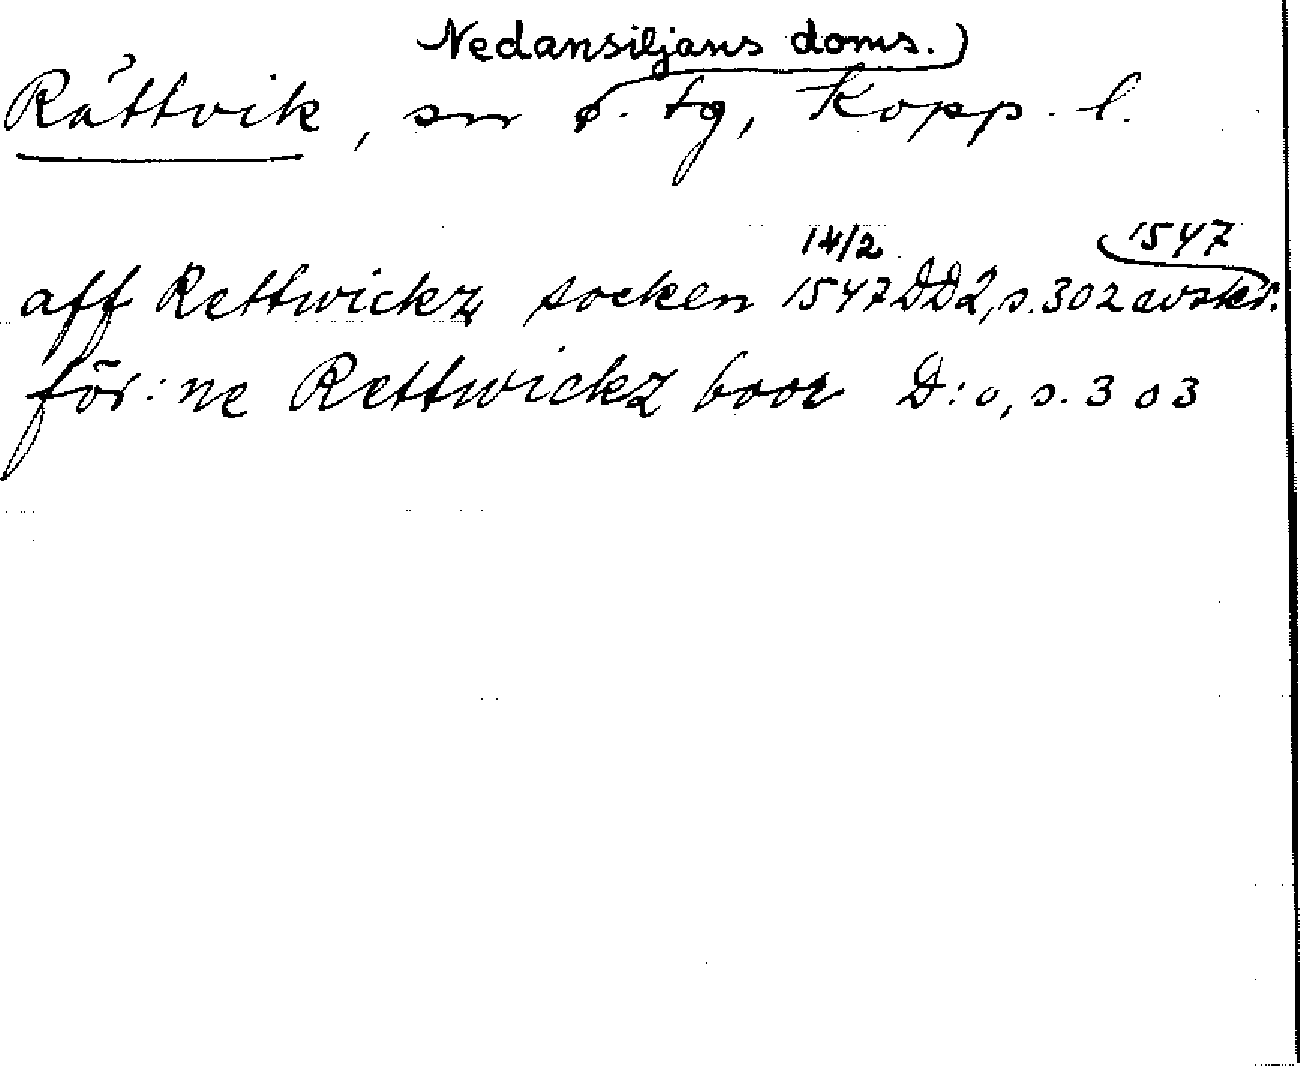 Nedansiljans doms.)
Rättvik, sn o. tg, Kopp. l.
14/2 1547
aff Rettwickz socken 1547 DD2, s. 302 avskr.
för:ne Rettwickz boor D:o, s. 303